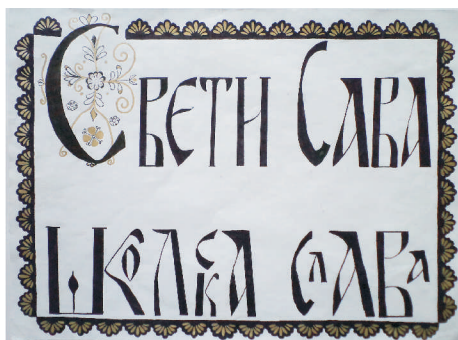 Свети Сава
Школска слава